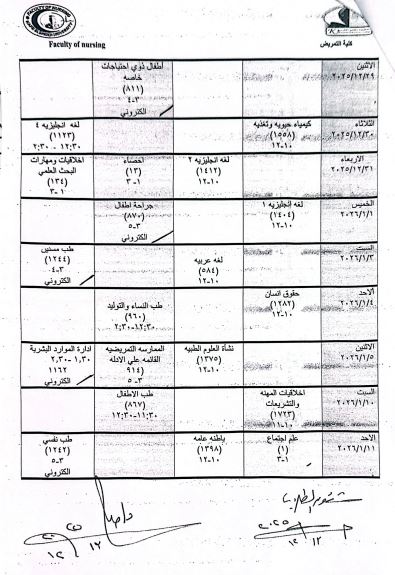 Faculty of nursing
كلية التمريض
الاثنين
٢٠٢٥/١٢/٢٩
أطفال ذوي احتياجات
خاصه
(٨١١)
٣-٤
الكتروني
الثلاثاء
٢٠٢٥/١٢/٣٠
كيمياء حيويه وتغذيه
(١٥٥٨)
١٠-١٢
لغه انجليزيه ٤
(١١٢٣)
١٢:٣٠ - ٢:٣٠
الاربعاء
٢٠٢٥/١٢/٣١
لغه انجليزيه ٢
(١٤١٢)
١٠-١٢
احصاء
(١٣)
١-٣
اخلاقيات ومهارات
البحث العلمي
(١٣٤)
١-٣
الخميس
٢٠٢٦/١/١
لغه إنجليزيه ١
(١٤٠٤)
١٠-١٢
جراحة اطفال
(٨٧٠)
٣-٥
الكتروني
السبت
٢٠٢٦/١/٣
لغه عربيه
(٥٨٤)
١٠-١٢
طب مسنين
(١٢٤٤)
٣-٤
الكتروني
الاحد
٢٠٢٦/١/٤
حقوق انسان
(١٢٨٢)
١٠-١٢
طب النساء والتوليد
(٩٦٠)
١٢:٣٠-٢:٣٠
الاثنين
٢٠٢٦/١/٥
نشأة العلوم الطبيه
(١٣٧٥)
١٠-١٢
الممارسه التمريضيه
القائمه علي الادله
٩١٤)
٣-٥
ادارة الموارد البشرية
١,٣٠ - ٢,٣٠
١١٦٢
الكتروني
السبت
٢٠٢٦/١/١٠
اخلاقيات المهنه
والتشريعات
(١٧٢٣)
١٠-١١
طب الاطفال
(٨٦٧)
١١:٣٠-١٢:٣٠
الاحد
٢٠٢٦/١/١١
علم اجتماع
(١)
١-٣
باطنه عامه
(١٣٩٨)
١٠-١٢
طب نفسي
(١٢٤٢)
٣-٥
الكتروني